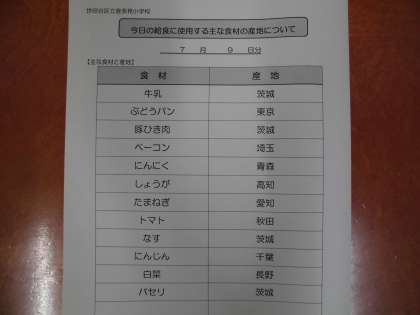 今日の給食に使用する主な食材の産地について
7 月 9 日分
【主な食材と産地】
食 材 産 地
牛乳 茨城
ぶどうパン 東京
豚ひき肉 茨城
ベーコン 埼玉
にんにく 青森
しょうが 高知
たまねぎ 愛知
トマト 秋田
なす 茨城
にんじん 千葉
白菜 長野
パセリ 茨城